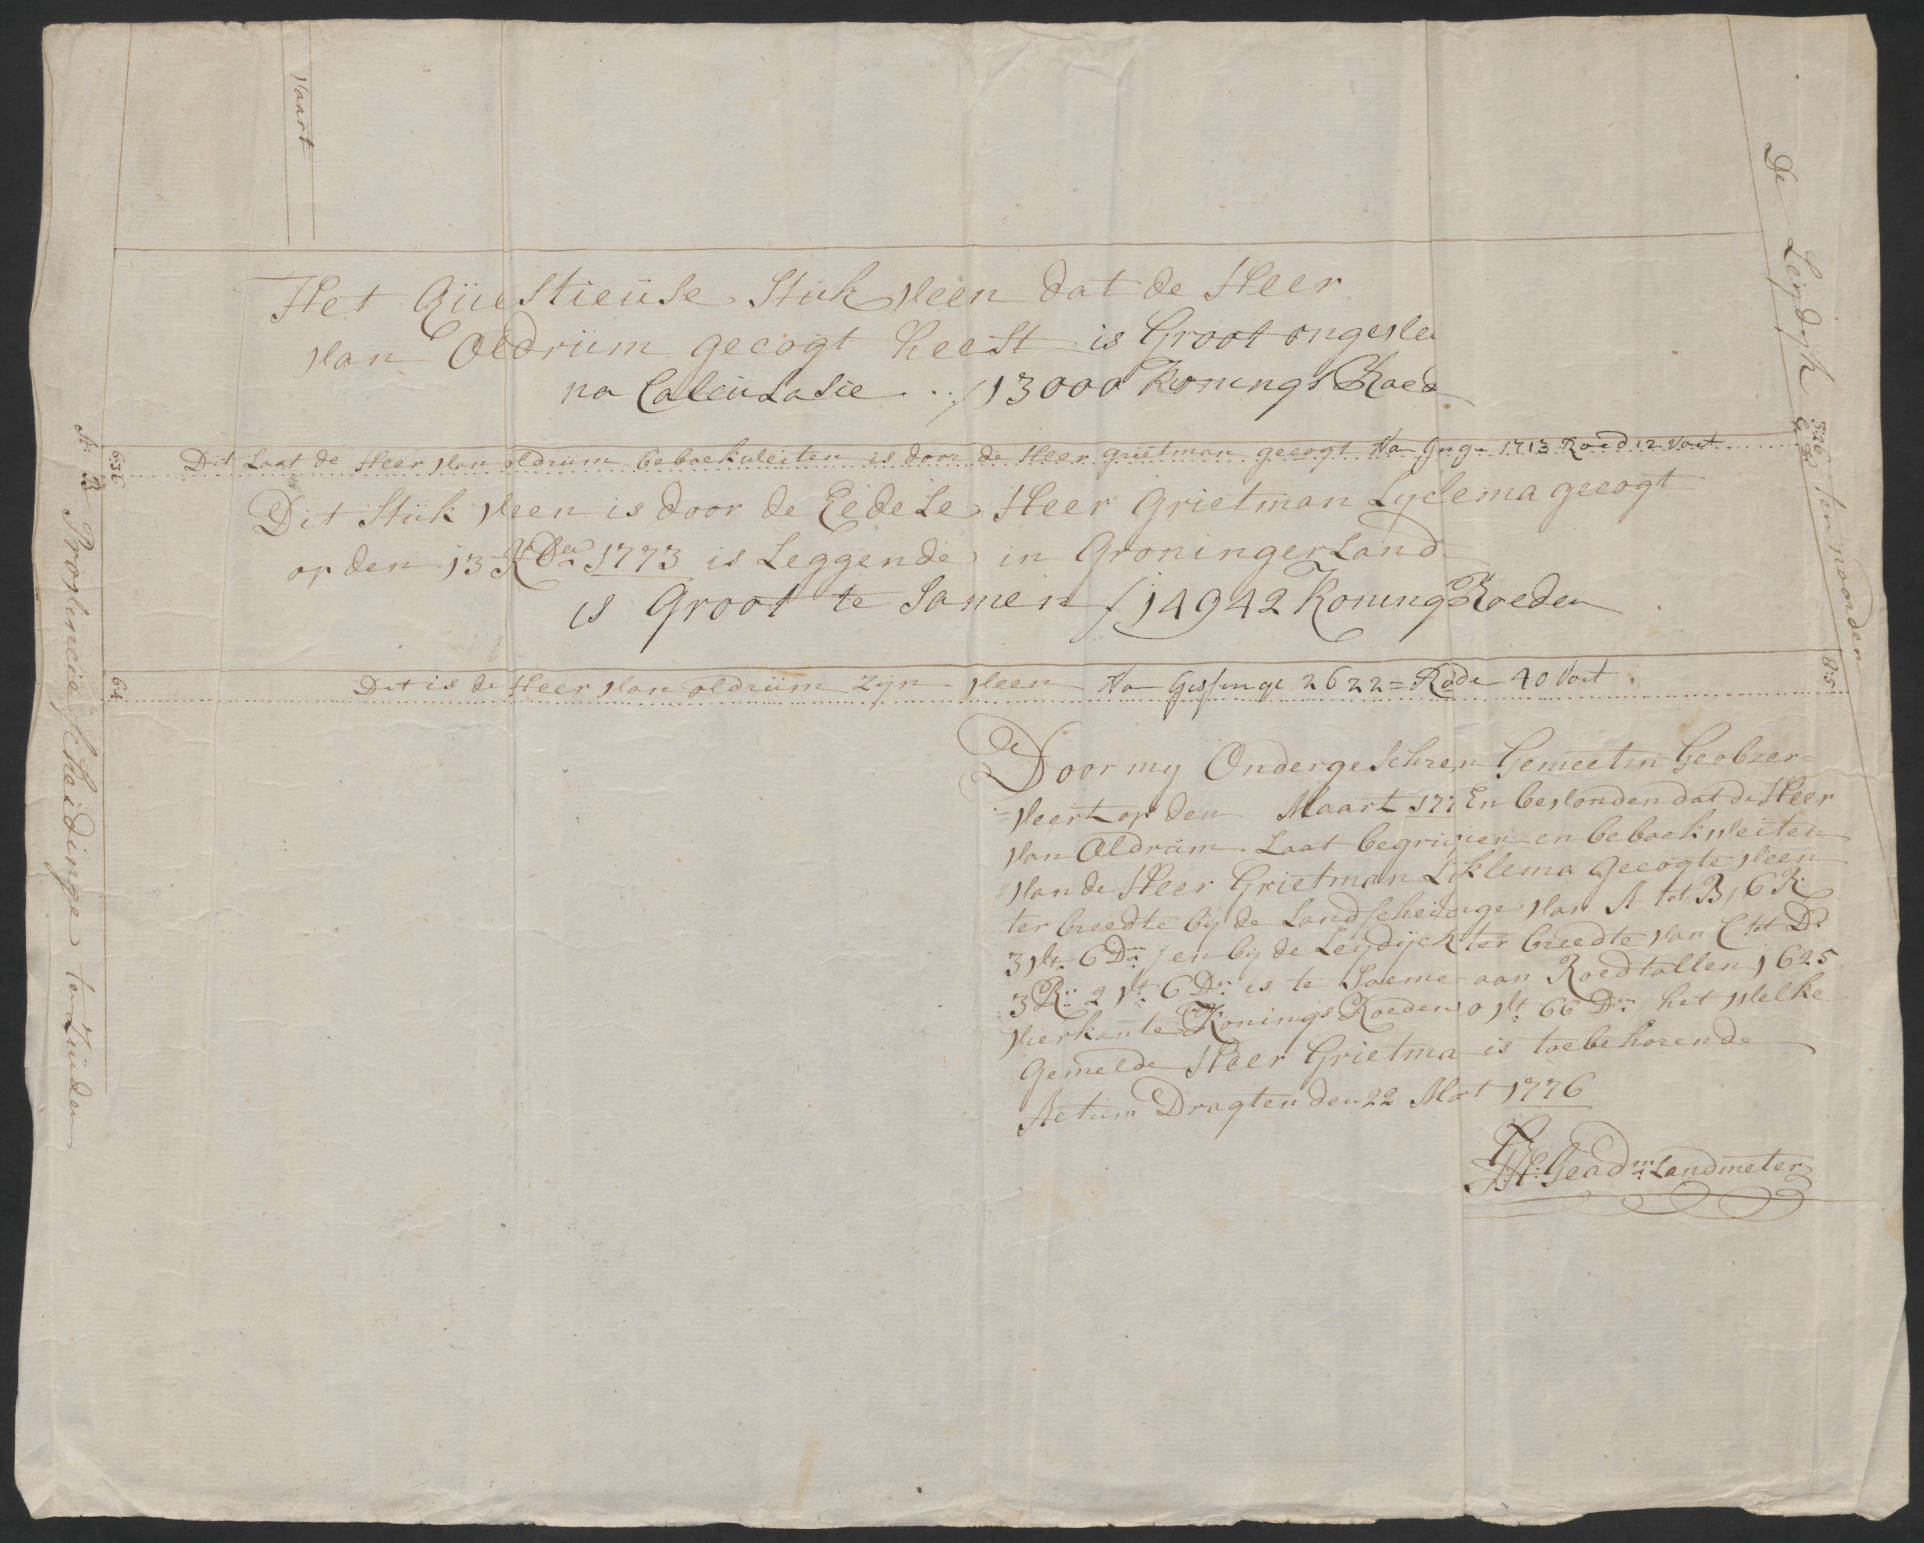 Vaart
De Leijdijk ten noorden
Het Qüestieüse Stük Veen dat de Heer
van Oldrüm gecogt heeft is Groot ongeve
na Calcülasie .. / 13000 Konings Roed
3:26
C: D:
636
A: B
Dit Laat de Heer van oldrüm beboekweiten is door de Heer grietman gecogt Na 1713 Roed 12 Voet
Dit Stük Veen is door de Eedele Heer Grietman Lyclema gecogt
op den 13 1773 is Leggende in Groningerland
is Groot te Samen / 14942 Koning Roeden
64
8:5
Dit is de Heer van oldrüm zijn veen Na Gissinge 2622 = Rode 40 Voet
Provincie Scheidinge ten Zuiden
Door mij Ondergeschren Gemeeten Geobzer=
=veert op den Maart 177 En bevonden dat de Heer
van Oldrüm Laat begrijpen en beboekweiten
van de Heer Grietman Liklema gecogte veen
ter breedte bij de Landscheidinge van A tot B / 6 R:
3 vt: 6 Dm: / en bij de Leijdijck ter breedte van C tot D:
3 R: 2 vt: 6 Dm: is te Saeme aan Roedtallen 1625
vierkante Konings Roeden 0 vt: 66 Dm: / het welke
Gemelde Heer Grietma is toebehorende
Actum Dragten den 22 Mart 1776
H: Gead Landmeter